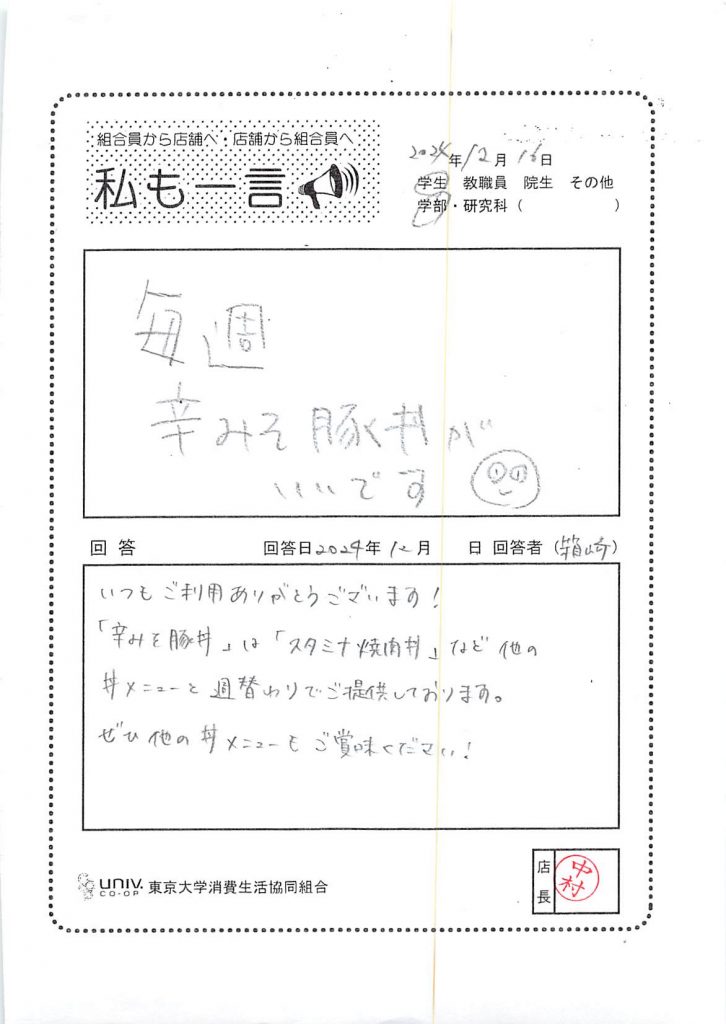 組合員から店舗へ・店舗から組合員へ
私も一言
2024年12月16日
学生 教職員 院生 その他
学部・研究科（ ）
毎週
辛みそ豚丼が
いいです
回答 回答日2024年12月 日 回答者（箱崎）
いつもご利用ありがとうございます！
「辛みそ豚丼」は「スタミナ焼肉丼」など他の
丼メニューと週替わりでご提供しております。
ぜひ他の丼メニューもご賞味ください！
UNIV.
CO-OP
東京大学消費生活協同組合
店長
中村